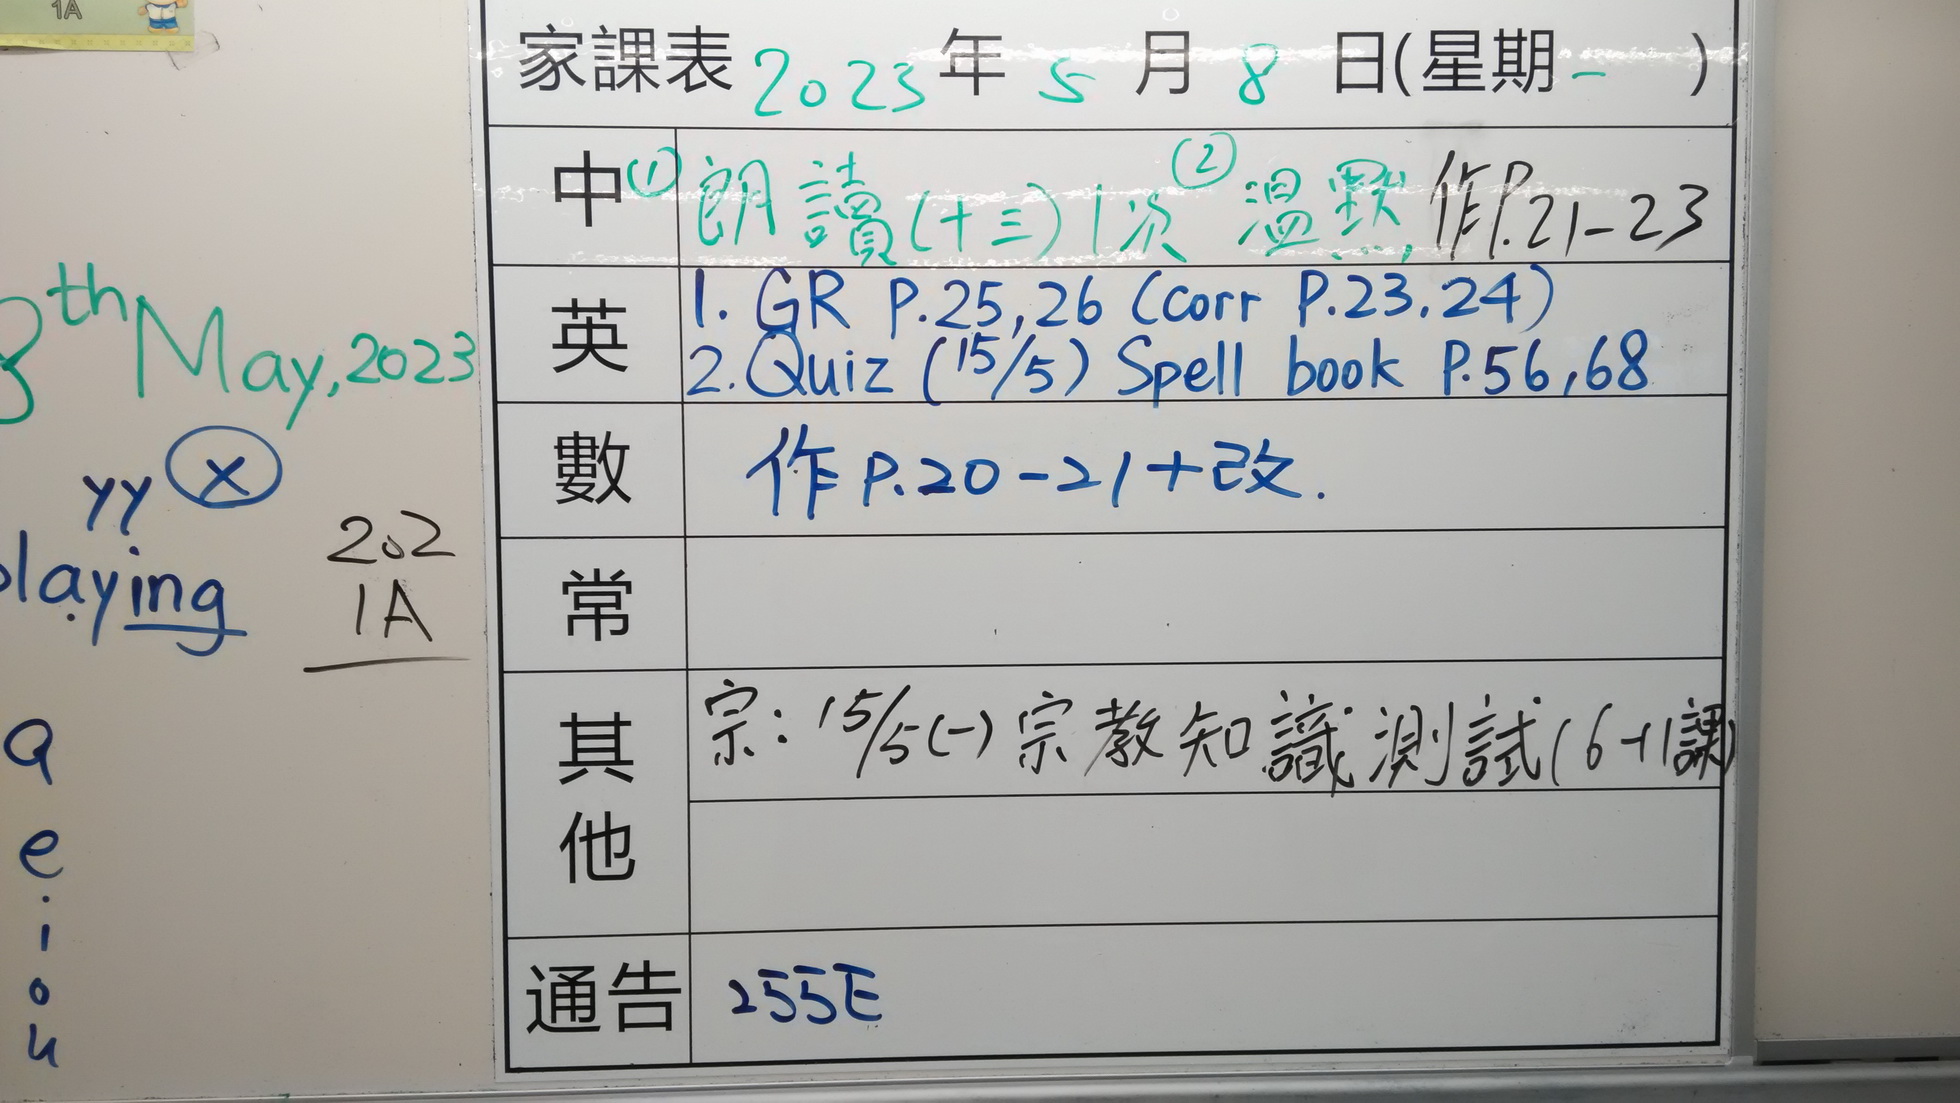 1A
家課表 2023 年 5 月 8 日(星期一 )
中 ① 朗讀(十三)1次 ② 溫默, 作P.21-23
英 1. GR P.25,26 (corr P.23.24)
2. Quiz (15/5) Spell book P.56,68
數 作 P.20-21+改.
常
其他 宗: 15/5(一) 宗教知識測試(6-11課)
通告 255E
8th May, 2023
yy x
playing
202
1A
a
e
i
o
u